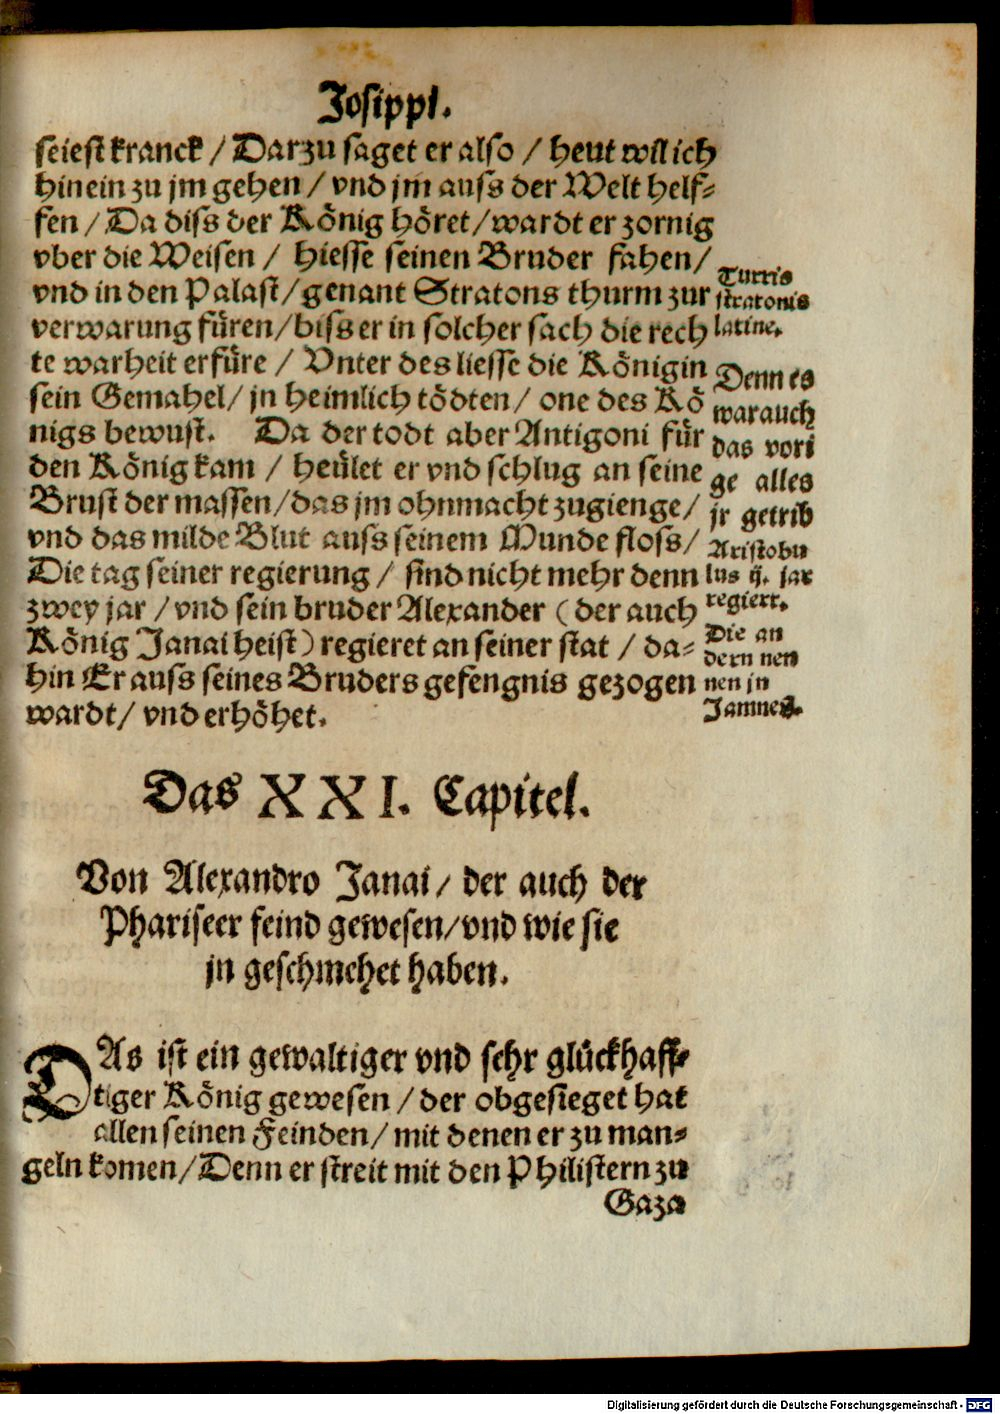 Josippi.
seiest kranck / Darzu saget er also / heut will ich
hinein zu jm gehen / vnd jm auss der Welt helf-
fen / Da diss der König höret / wardt er zornig
vber die Weisen / hiesse seinen Bruder fahen /
vnd in den Palast / genant Stratons thurm zur
verwarung füren / biss er in solcher sach die rech
te warheit erfüre / Vnter des liesse die Königin
sein Gemahel / jn heimlich tödten / one des Kö
nigs bewust. Da der todt aber Antigoni für
den König kam / heület er vnd schlug an seine
Brust der massen / das jm ohnmacht zugienge /
vnd das milde Blut auss seinem Munde floss /
Die tag seiner regierung / sind nicht mehr denn
zwey jar / vnd sein bruder Alexander ( der auch
König Janai heist ) regieret an seiner stat / da-
hin Er auss seines Bruders gefengnis gezogen
wardt / vnd erhöhet.
Turris
stratonis
latine.
Denn es
war auch
das vori
ge alles
jr getrib
Aristobu
lus ij. jar
regiert.
Die an
dern nen
nen jn
Jamnes.
Das XXI. Capitel.
Von Alexandro Janai / der auch der
Phariseer feind gewesen / vnd wie sie
jn geschmehet haben.
DAs ist ein gewaltiger vnd sehr glückhaff-
tiger König gewesen / der obgesieget hat
allen seinen Feinden / mit denen er zu man-
geln komen / Denn er streit mit den Philistern zu
Gaza
Digitalisierung gefördert durch die Deutsche Forschungsgemeinschaft - DFG